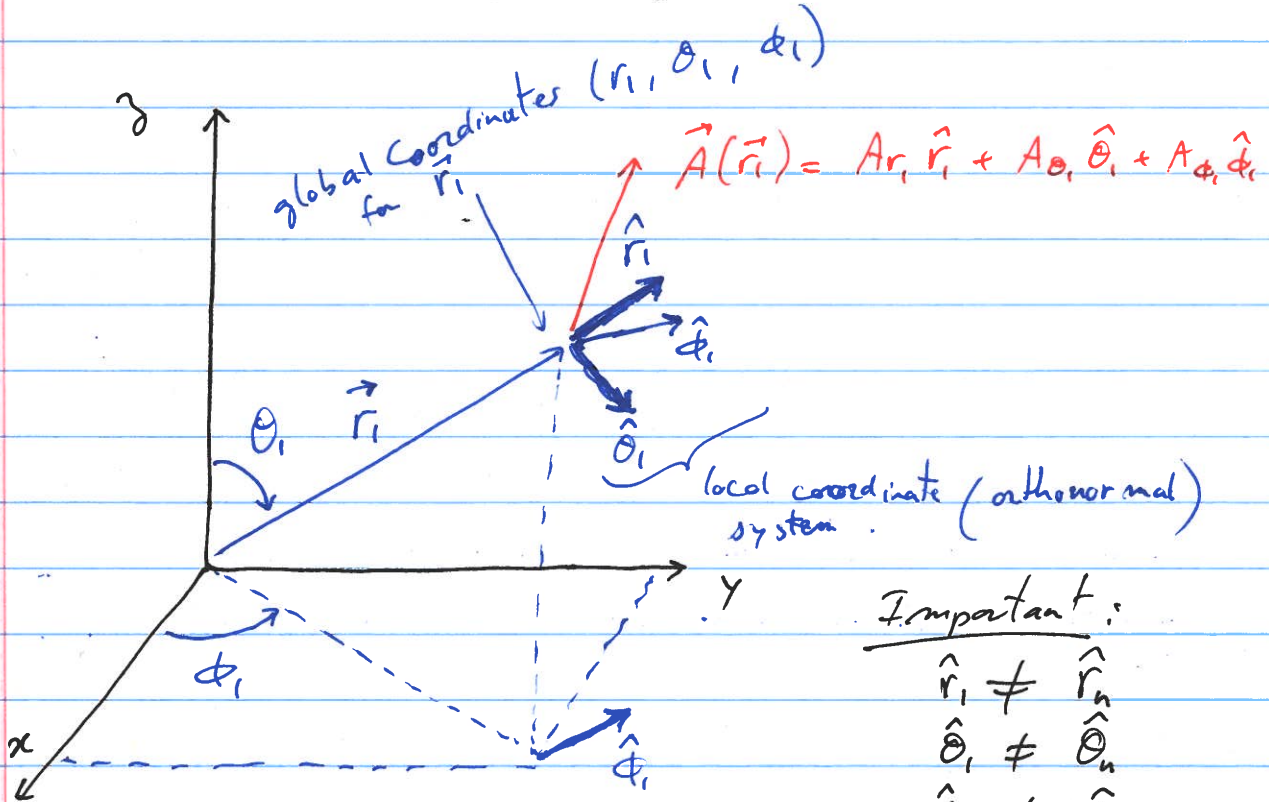 global coordinates (r₁, θ₁, φ₁)
for r⃗₁
z
A⃗(r⃗₁) = Ar₁ r̂₁ + Aθ₁ θ̂₁ + Aφ₁ φ̂₁
r̂₁
φ̂₁
θ̂₁
θ₁
r⃗₁
local cooordinate (orthonormal)
system.
y
φ₁
x
φ̂₁
Important:
r̂₁ ≠ r̂ₙ
θ̂₁ ≠ θ̂ₙ